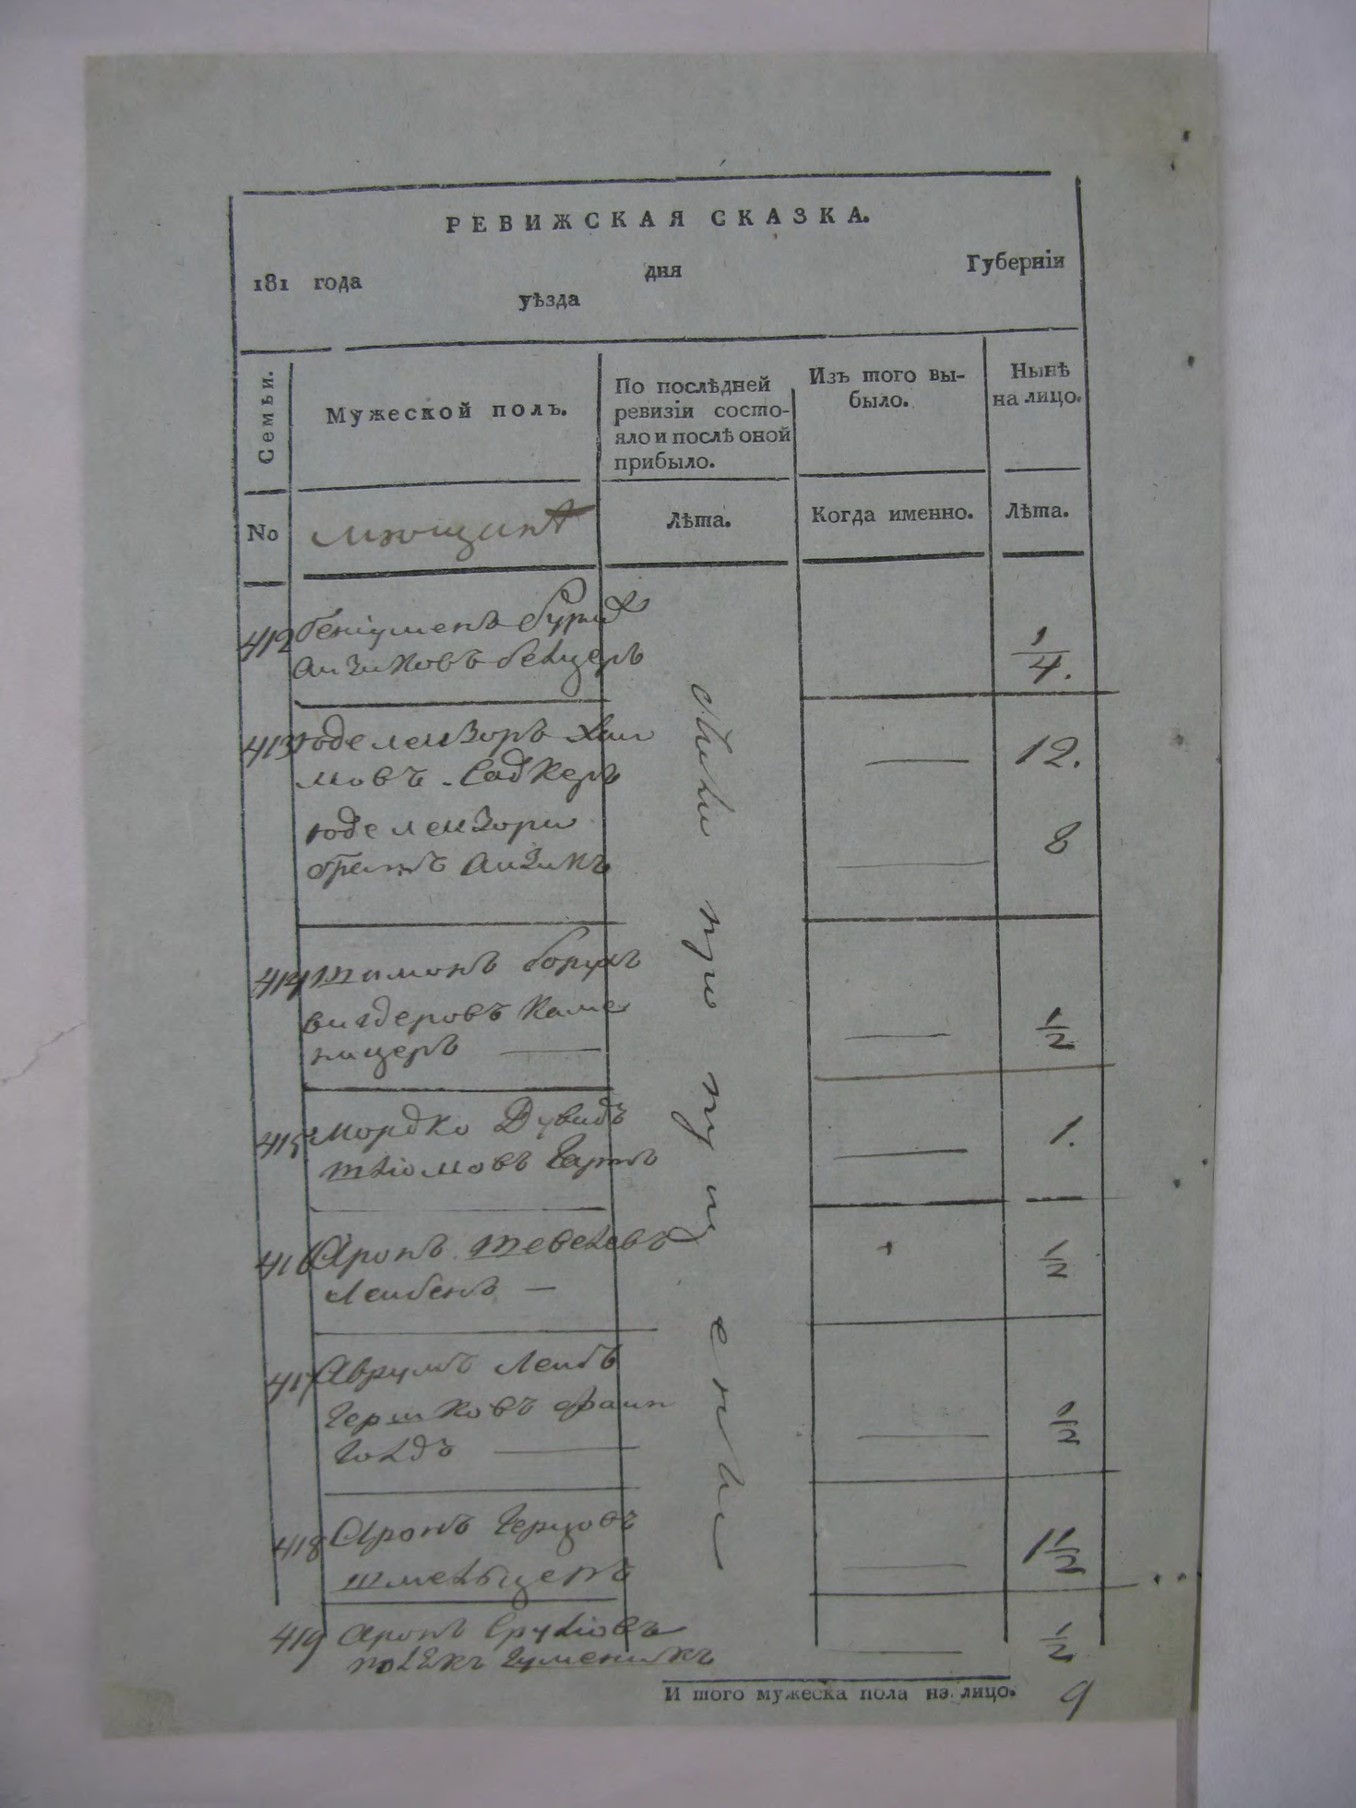 РЕВИЖСКАЯ СКАЗКА.
181 года дня Губернїи
уѣзда
Семьи.
Мужеской полъ.
По послѣдней
ревизїи состо-
яло и послѣ оной
прибыло.
Изъ того вы-
было.
Нынѣ
на лицо.
No
Лѣта.
Когда именно.
Лѣта.
412
аизиковъ
1/4.
413 юде леизоръ хаи
мовъ садкеръ
12.
юде леизори
братъ аизикъ
8
414 шимонъ борухъ
вигдеровъ каме
ницеръ
1/2
415 мордко Дувидъ
1.
416 Аронъ тевелевъ
Леибенъ
1/2
417 Аврумъ Леибъ
гершковъ фаин
голдъ
1/2
418 Аронъ герцовъ
шмельцеръ
1 1/2
419 аронъ сруліовъ
1/2
И того мужеска пола на лицо. 9